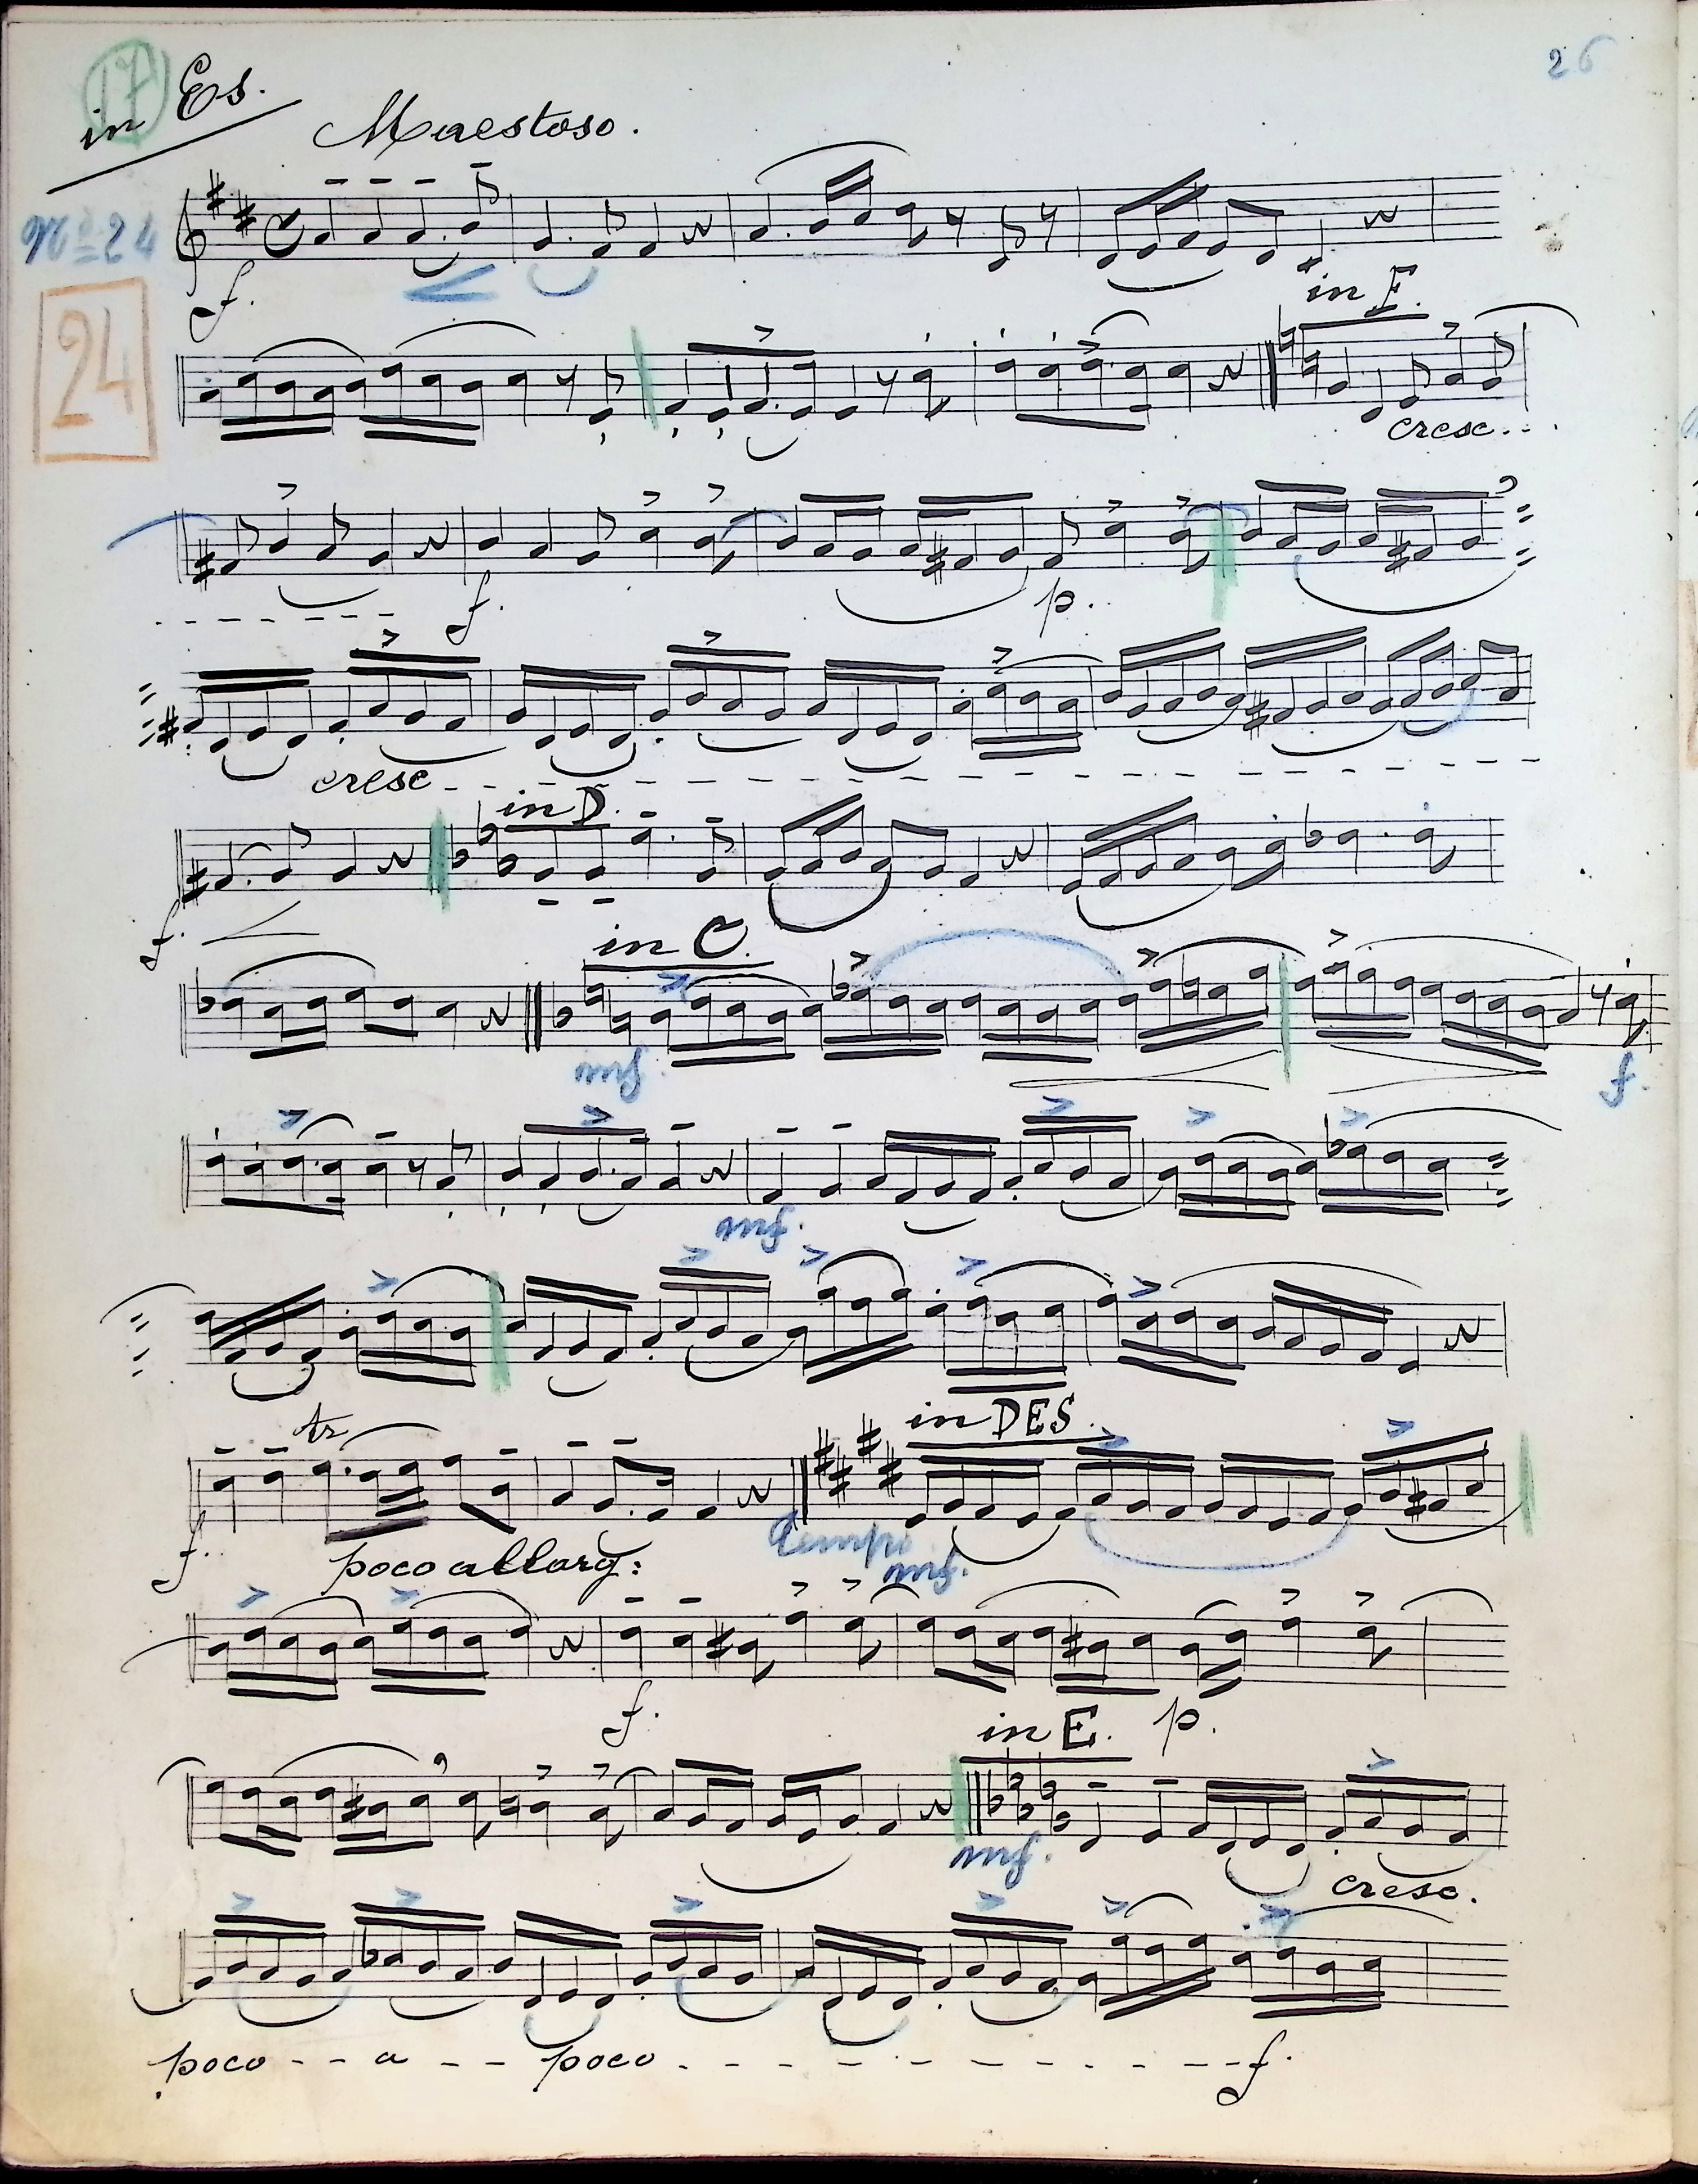 26
17
in Es.
Maestoso.
Nº 24
24
f.
in F.
cresc...
f. p.
cresc
in D.
f.
in C.
mf.
f.
mf.
tr
in DES.
f.
poco allarg:
Tempo
mf.
f. p.
in E.
mf.
cresc.
poco -- a -- poco
f.